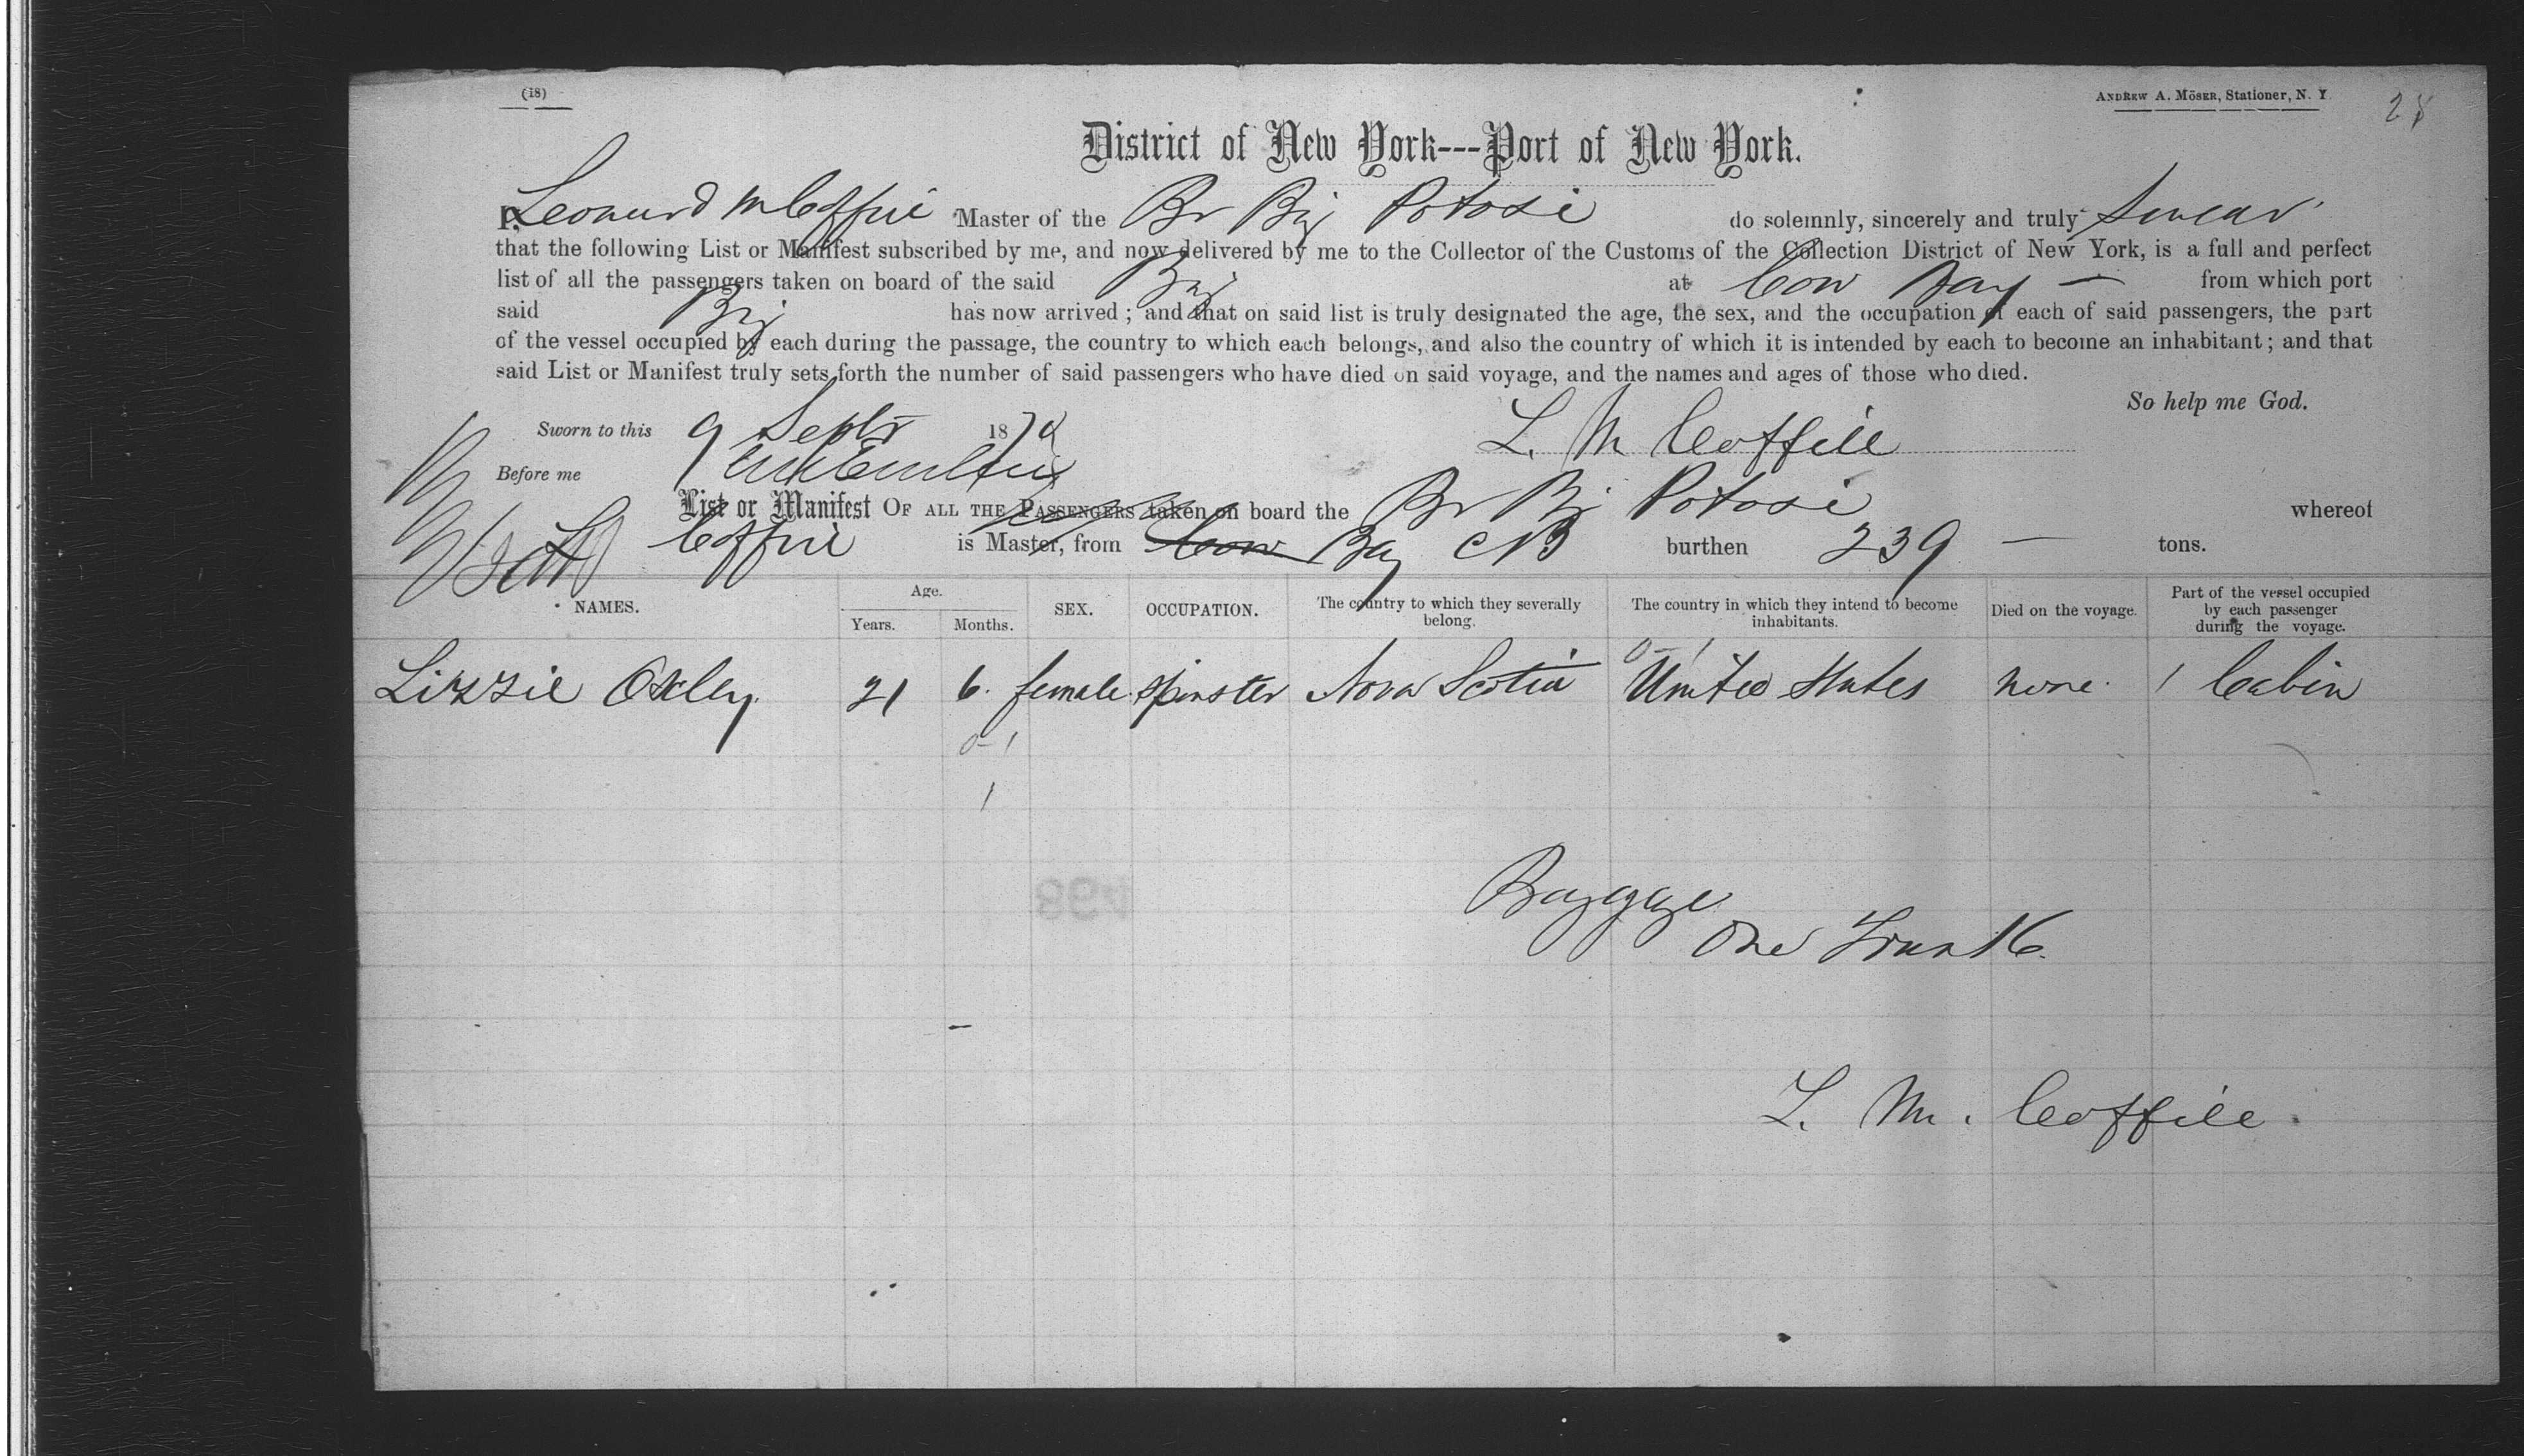 (18)
ANDREW A. MÖSER, Stationer, N. Y.
28
District of New York---Port of New York.
I, Leonard M Coffill Master of the Br Brig Potosi do solemnly, sincerely and truly Swear
that the following List or Manifest subscribed by me, and now delivered by me to the Collector of the Customs of the Collection District of New York, is a full and perfect
list of all the passengers taken on board of the said Brig at Cow Bay — from which port
said Brig has now arrived ; and that on said list is truly designated the age, the sex, and the occupation of each of said passengers, the part
of the vessel occupied by each during the passage, the country to which each belongs, and also the country of which it is intended by each to become an inhabitant ; and that
said List or Manifest truly sets forth the number of said passengers who have died on said voyage, and the names and ages of those who died.
So help me God.
Sworn to this 9 Septr 1879
L. M Coffill
Before me
List or Manifest OF ALL THE PASSENGERS taken on board the Br Brig Potosi whereof
Coffill is Master, from Cow Bay CB burthen 239 — tons.
NAMES. Age. Years. Months. SEX. OCCUPATION. The country to which they severally belong. The country in which they intend to become inhabitants. Died on the voyage. Part of the vessel occupied by each passenger during the voyage.
0-1
Lizzie Oxley. 21 6. female spinster Nova Scotia United States none. 1 Cabin
0-1
1
Baggage
One Trunk.
L. M. Coffill.